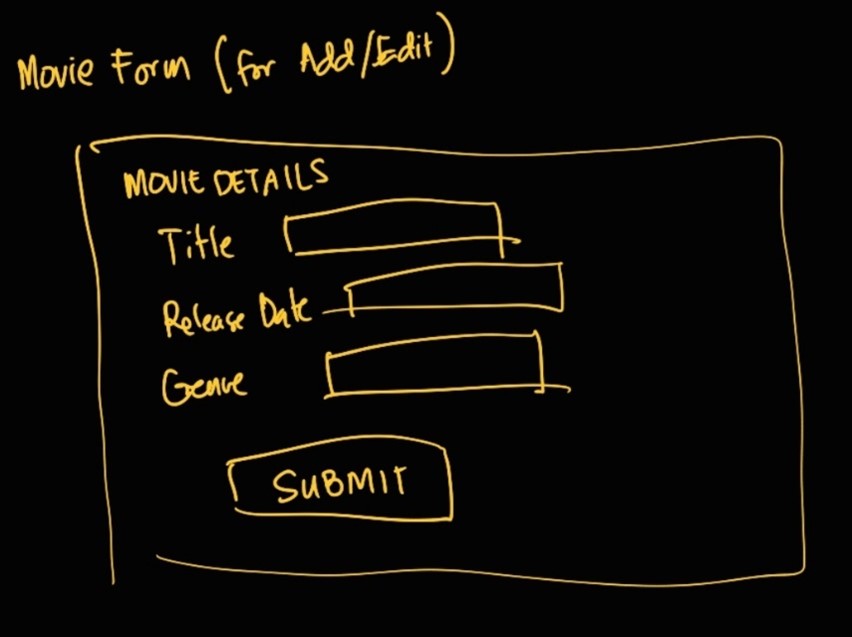 Movie Form (for Add/Edit)
MOVIE DETAILS
Title
Release Date
Genre
SUBMIT